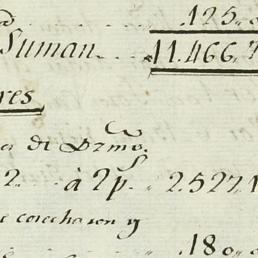 125..
Suman.... 11.466..
res
a de Dzmo.
2.. à 2p... 2.527.1
e cosecharon y
180..